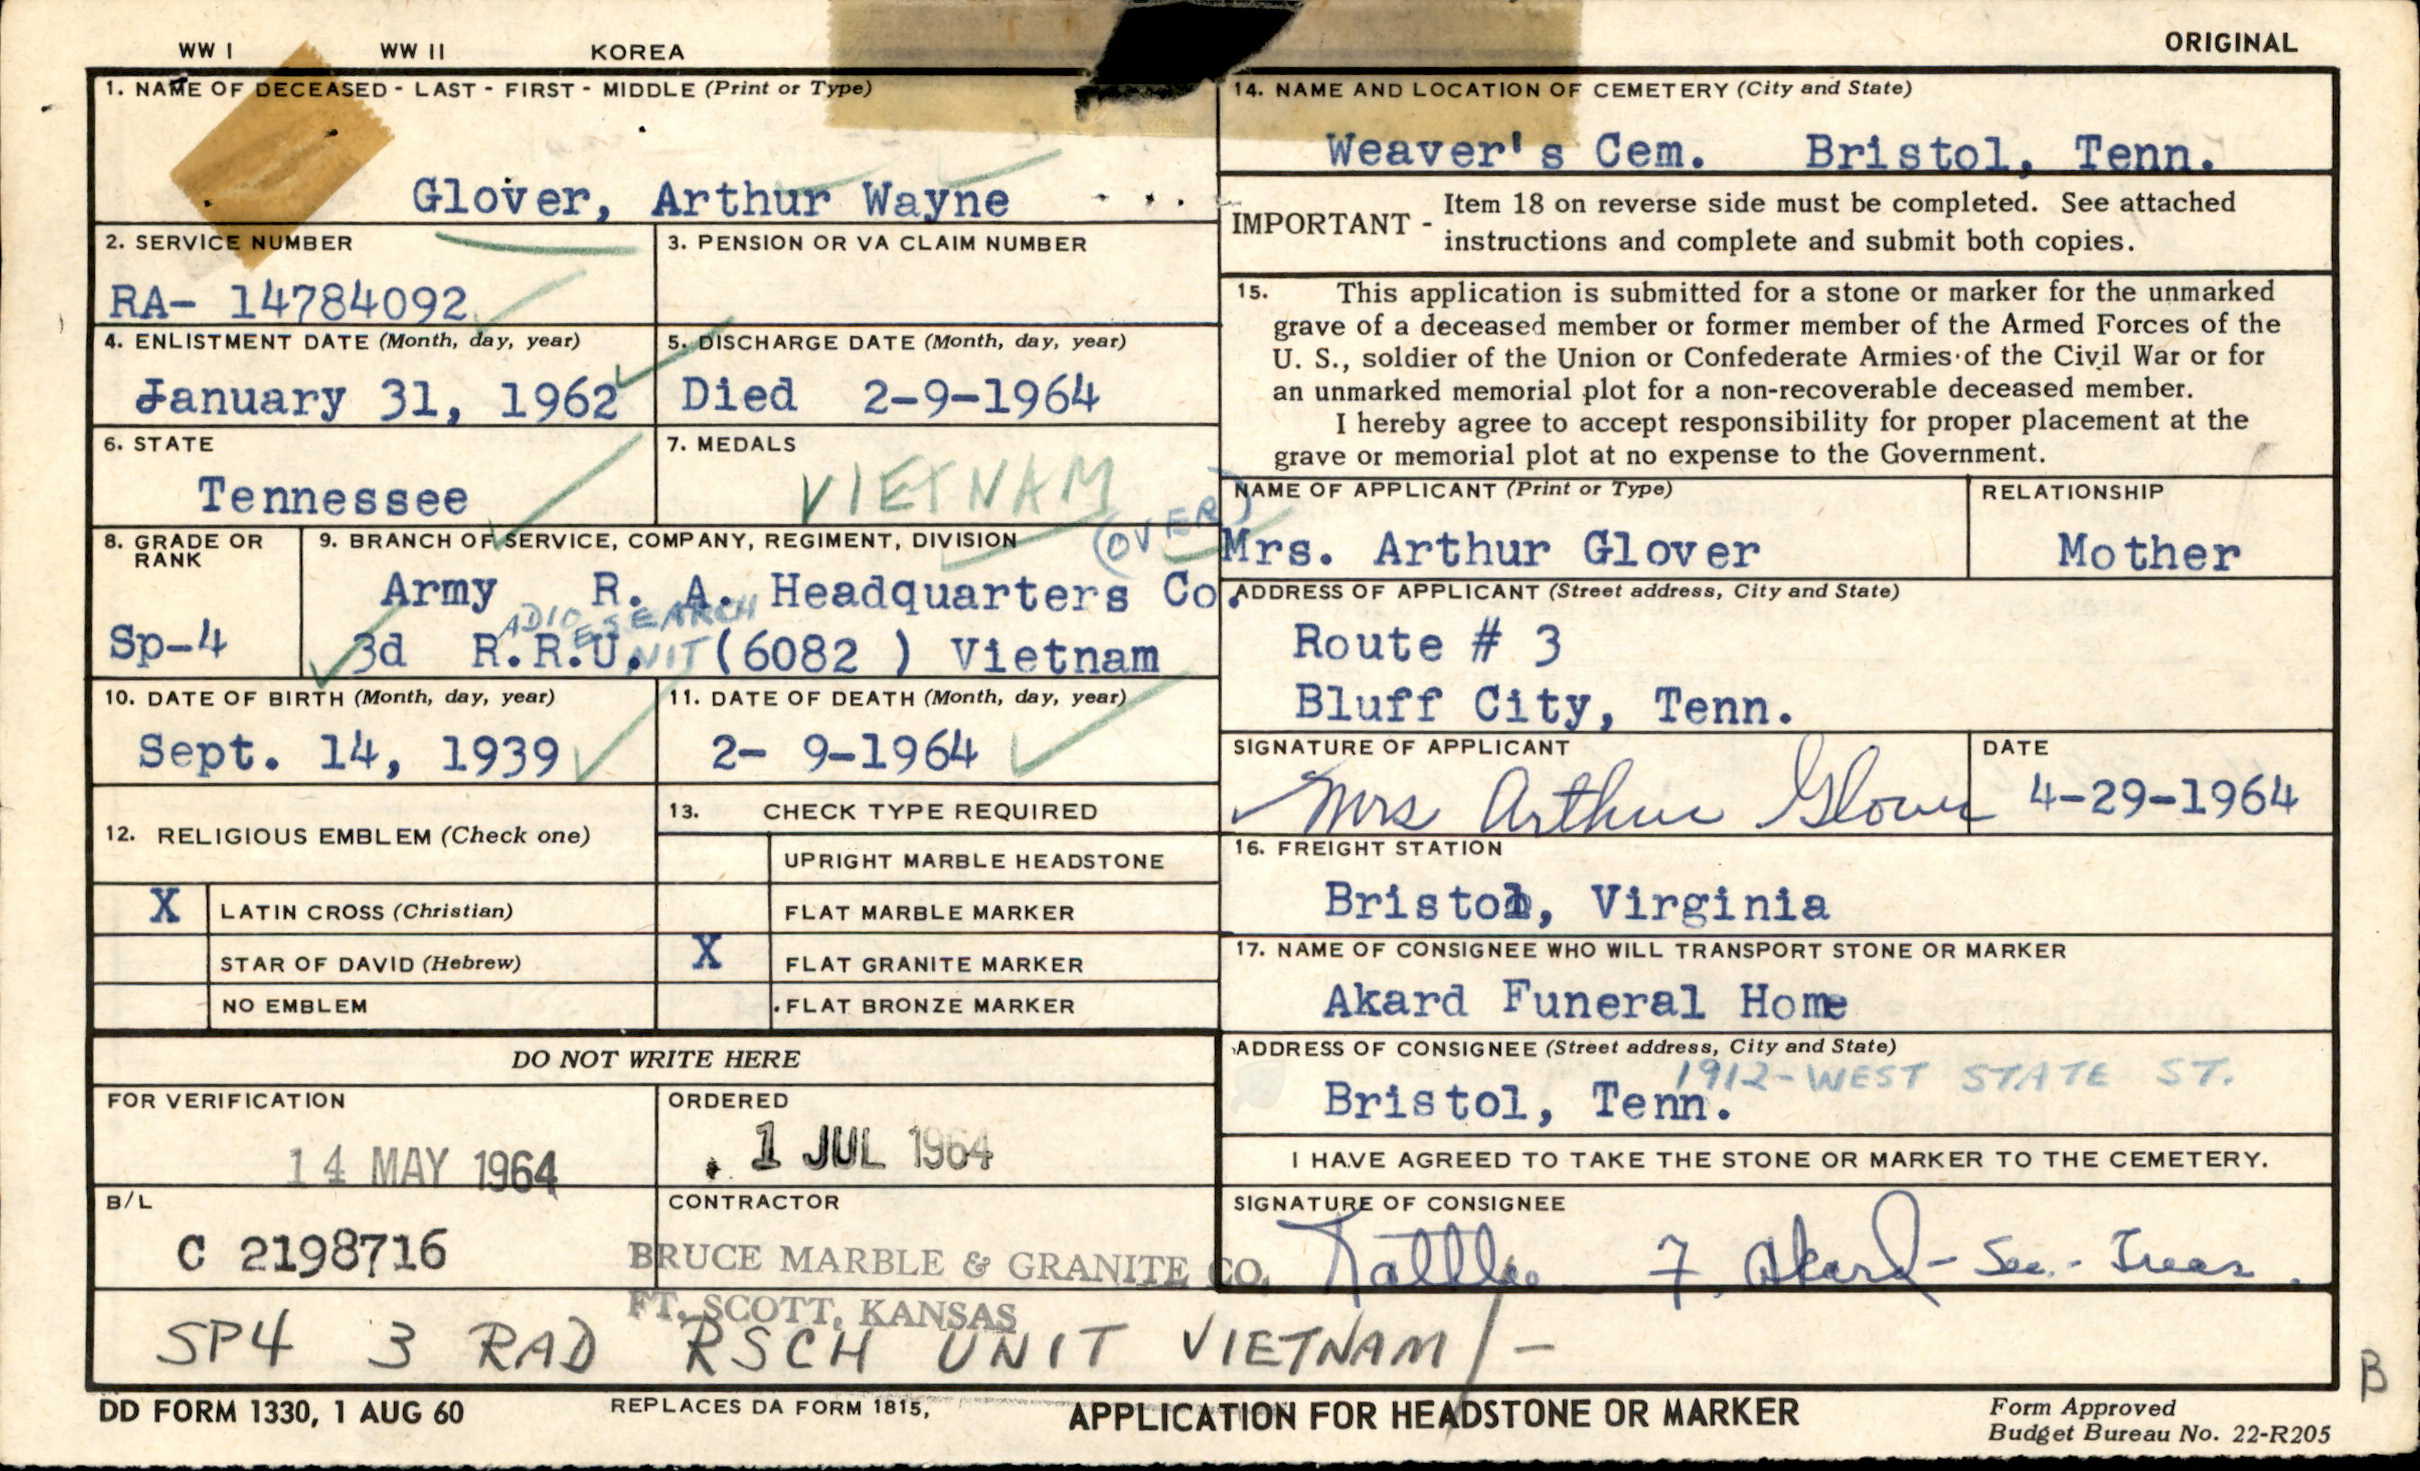 WW I WW II KOREA
ORIGINAL
1. NAME OF DECEASED - LAST - FIRST - MIDDLE (Print or Type)
Glover, Arthur Wayne
2. SERVICE NUMBER
RA- 14784092
3. PENSION OR VA CLAIM NUMBER
4. ENLISTMENT DATE (Month, day, year)
January 31, 1962
5. DISCHARGE DATE (Month, day, year)
Died 2-9-1964
6. STATE
Tennessee
7. MEDALS
VIETNAM
(OVER)
8. GRADE OR
RANK
Sp-4
9. BRANCH OF SERVICE, COMPANY, REGIMENT, DIVISION
Army R. A. Headquarters Co.
ADIO ESEARCH
3d R.R.U. NIT (6082 ) Vietnam
10. DATE OF BIRTH (Month, day, year)
Sept. 14, 1939
11. DATE OF DEATH (Month, day, year)
2- 9-1964
12. RELIGIOUS EMBLEM (Check one)
X LATIN CROSS (Christian)
STAR OF DAVID (Hebrew)
NO EMBLEM
13. CHECK TYPE REQUIRED
UPRIGHT MARBLE HEADSTONE
FLAT MARBLE MARKER
X FLAT GRANITE MARKER
FLAT BRONZE MARKER
DO NOT WRITE HERE
FOR VERIFICATION
14 MAY 1964
ORDERED
1 JUL 1964
B/L
C 2198716
CONTRACTOR
BRUCE MARBLE & GRANITE CO.
FT. SCOTT, KANSAS
SP4 3 RAD RSCH UNIT VIETNAM / -
14. NAME AND LOCATION OF CEMETERY (City and State)
Weaver's Cem. Bristol, Tenn.
IMPORTANT - Item 18 on reverse side must be completed. See attached
instructions and complete and submit both copies.
15. This application is submitted for a stone or marker for the unmarked
grave of a deceased member or former member of the Armed Forces of the
U. S., soldier of the Union or Confederate Armies of the Civil War or for
an unmarked memorial plot for a non-recoverable deceased member.
I hereby agree to accept responsibility for proper placement at the
grave or memorial plot at no expense to the Government.
NAME OF APPLICANT (Print or Type)
Mrs. Arthur Glover
RELATIONSHIP
Mother
ADDRESS OF APPLICANT (Street address, City and State)
Route # 3
Bluff City, Tenn.
SIGNATURE OF APPLICANT
Mrs Arthur Glover
DATE
4-29-1964
16. FREIGHT STATION
Bristol, Virginia
17. NAME OF CONSIGNEE WHO WILL TRANSPORT STONE OR MARKER
Akard Funeral Home
ADDRESS OF CONSIGNEE (Street address, City and State)
1912-WEST STATE ST.
Bristol, Tenn.
I HAVE AGREED TO TAKE THE STONE OR MARKER TO THE CEMETERY.
SIGNATURE OF CONSIGNEE
F. Akard - Sec.- Treas.
B
DD FORM 1330, 1 AUG 60
REPLACES DA FORM 1815,
APPLICATION FOR HEADSTONE OR MARKER
Form Approved
Budget Bureau No. 22-R205